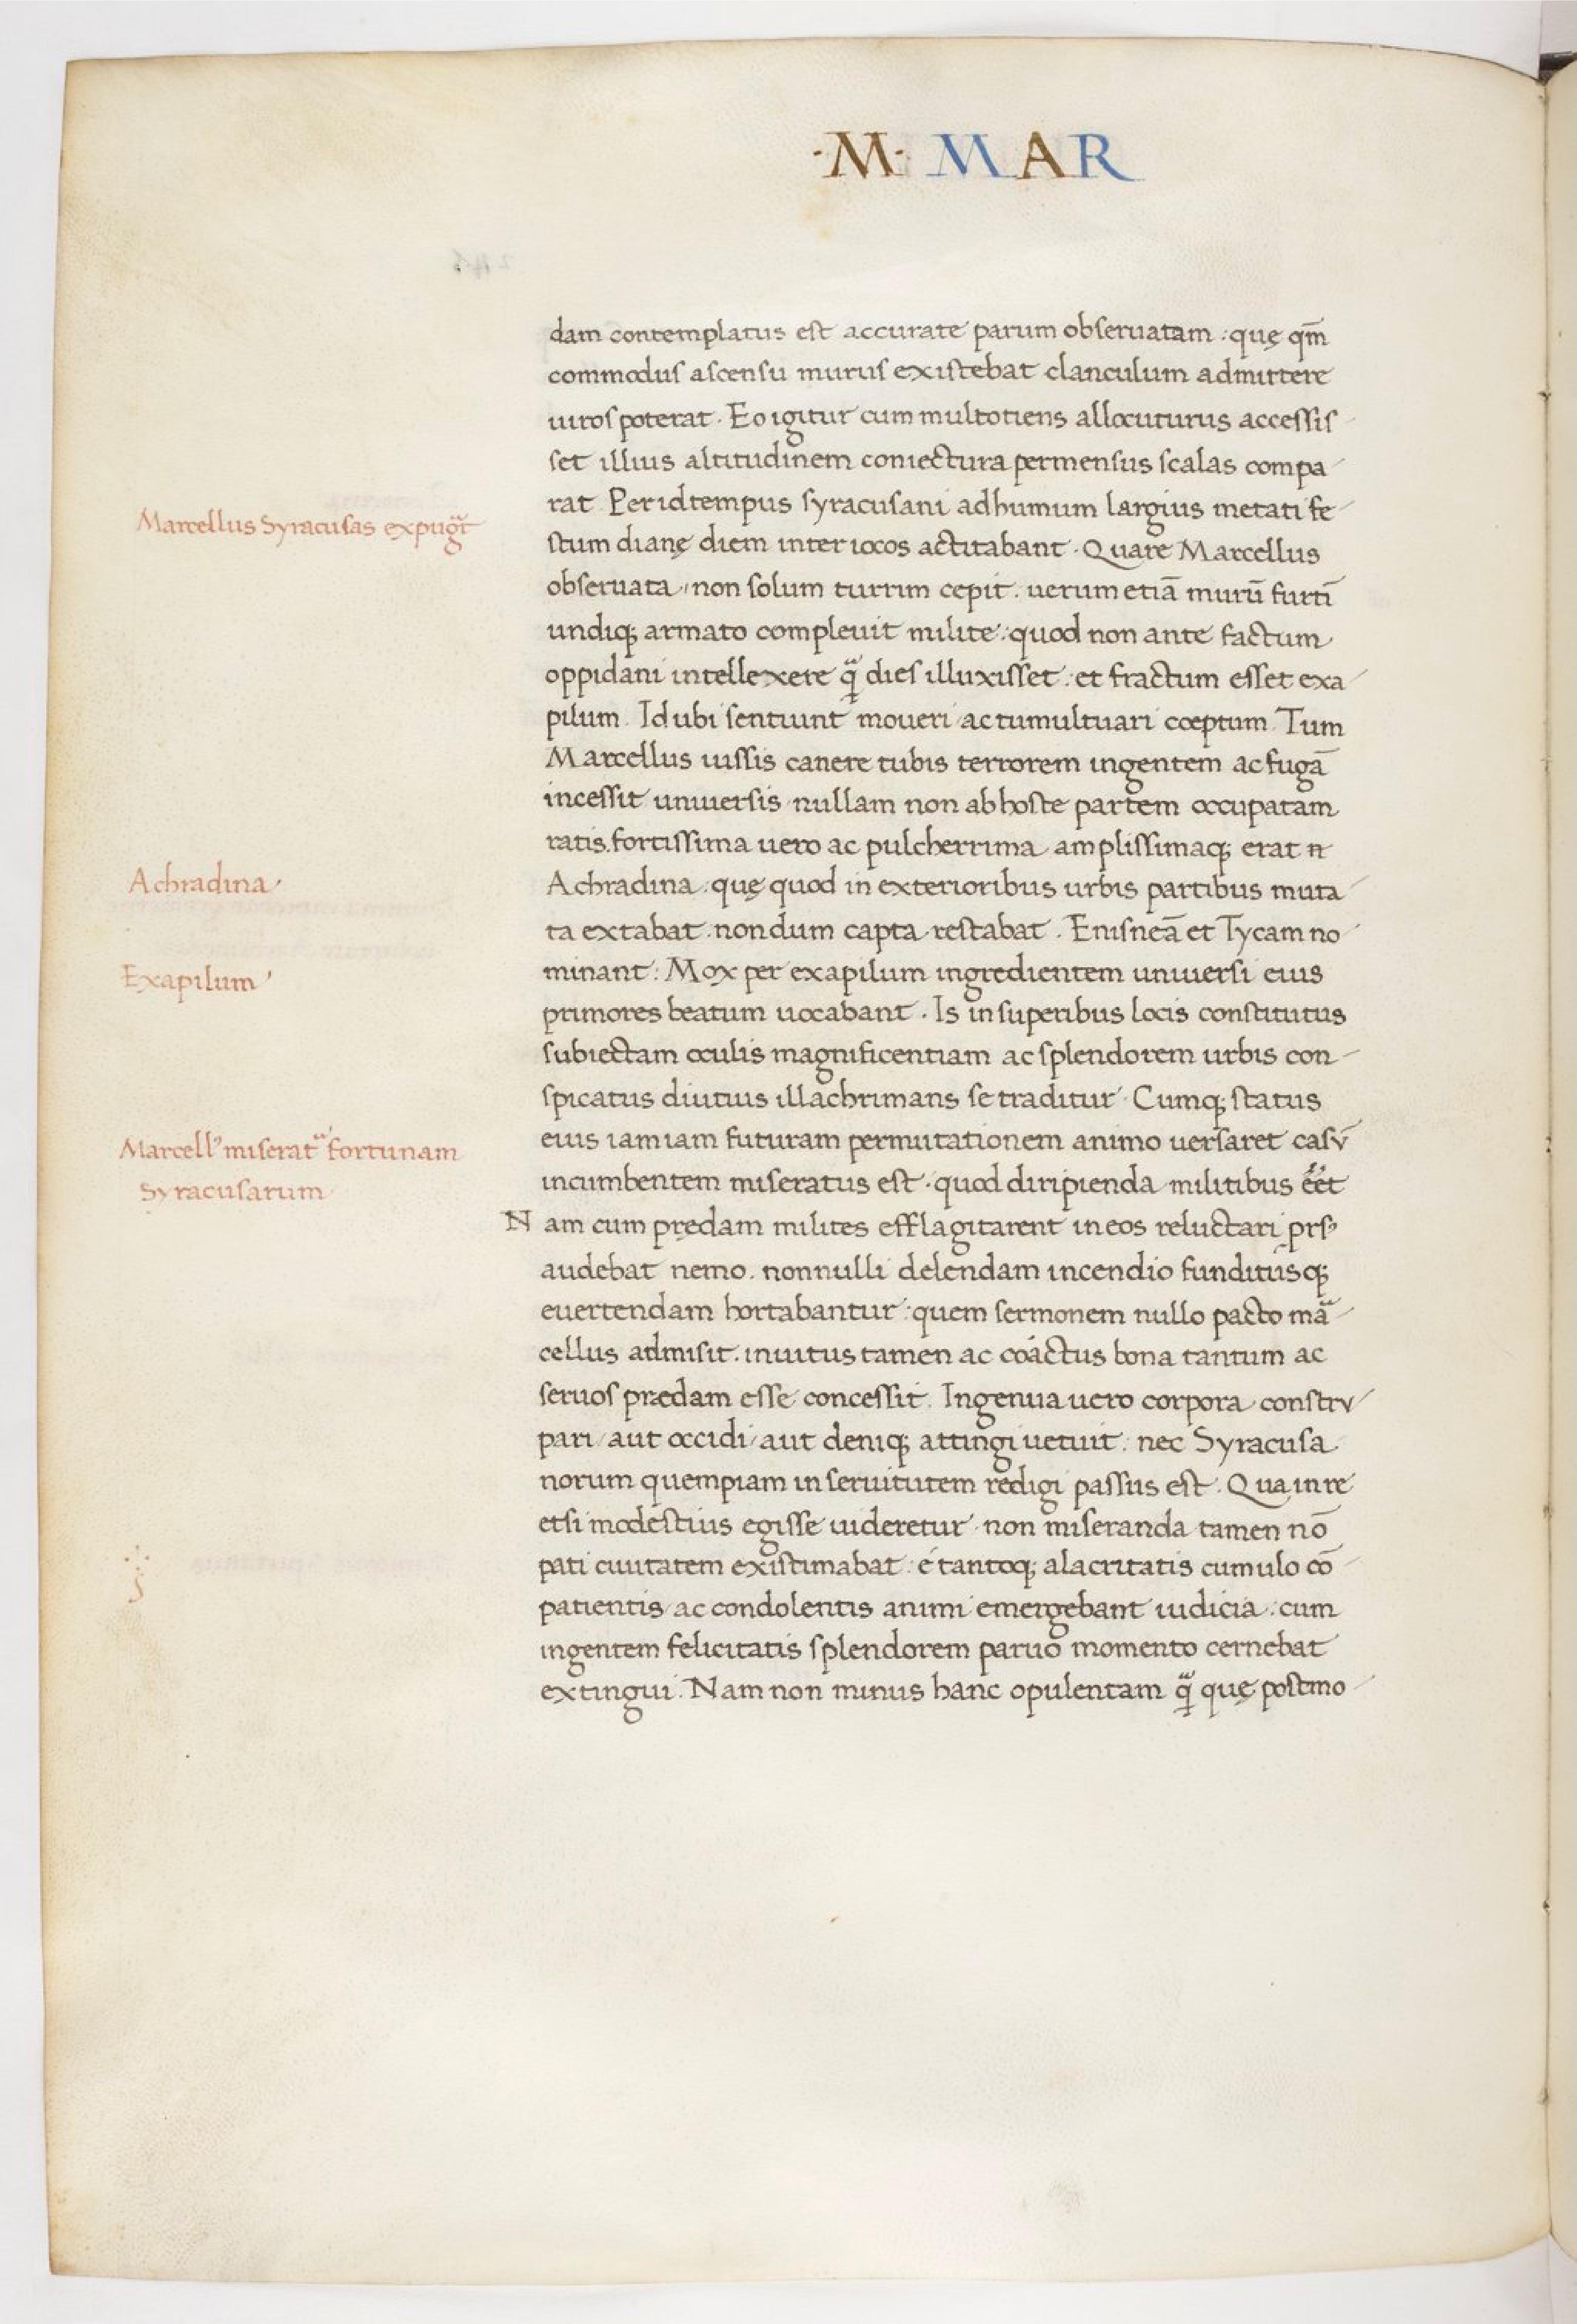 ·M· MAR
dam contemplatus est accurate parum obseruatam : quę qm̄
commodus ascensu murus existebat clanculum admittere
uiros poterat · Eo igitur cum multotiens allocuturus accessis
set illius altitudinem coniectura permensus scalas compa
rat Per id tempus syracusani ad humum largius metati fe
Marcellus Syracusas expugᷓt
stum dianę diem inter iocos actitabant · Quare Marcellus
obseruata non solum turrim cepit · uerum etiā murū furtī
undiq; armato compleuit milite : quod non ante factum
oppidani intellexere qᷓ dies illuxisset : et fractum esset exa
pilum . Id ubi sentiunt moueri ac tumultuari cœptum . Tum
Marcellus iussis canere tubis terrorem ingentem ac fugā
incessit uniuersis nullam non ab hoste partem occupatam
ratis. fortissima uero ac pulcherrima amplissimaq; erat n̄
Achradina
Achradina : quę quod in exterioribus urbis partibus mura
ta extabat nondum capta restabat . Enisneā et Tycam no
Exapilum
minant : Mox per exapilum ingredientem uniuersi eius
primores beatum uocabant . Is in superibus locis constitutus
subiectam oculis magnificentiam ac splendorem urbis con
spicatus diutius illachrimans se traditur · Cumq; status
Marcellꝰ miseratᷓ fortunam
eius iamiam futuram permutationem animo uersaret casū
Syracusarum
incumbentem miseratus est · quod diripienda militibus eēt
Nam cum prędam milites efflagitarent in eos reluctari prsꝰ
audebat nemo . nonnulli delendam incendio funditusq;
euertendam hortabantur : quem sermonem nullo pacto maᷓ
cellus admisit . inuitus tamen ac coactus bona tantum ac
seruos prædam esse concessit . Ingenua uero corpora constru
pari aut occidi aut deniq; attingi uetuit : nec Syracusa
norum quempiam in seruitutem redigi passus est . Qua in re
etsi modestius egisse uideretur non miseranda tamen nō
pati ciuitatem existimabat : é tantoq; alacritatis cumulo cō
patientis ac condolentis animi emergebant iudicia : cum
ingentem felicitatis splendorem paruo momento cernebat
extingui . Nam non minus hanc opulentam qᷓ quę postmo